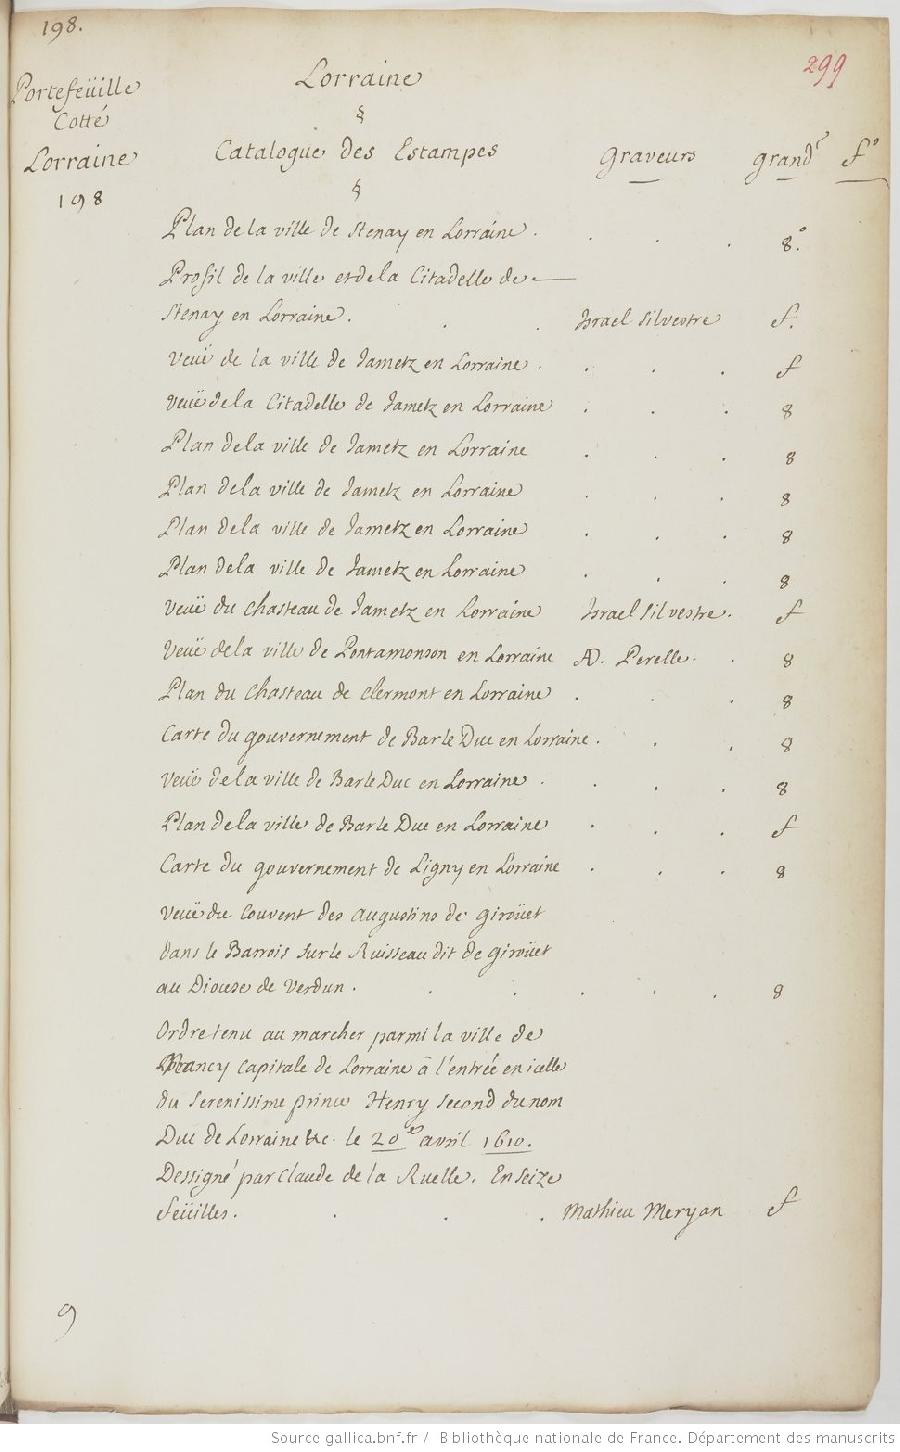 198.
299
Portefeüille
Cotté
Lorraine
198
Lorraine
§
Catalogue des Estampes Graveurs grand.r f.o
§
Plan de la ville de Stenay en Lorraine . . . . 8.o
Profil de la ville et de la Citadelle de
Stenay en Lorraine. . . Israel Silvestre f.
Veuë de la ville de Jametz en Lorraine . . . . f
Veuë de la Citadelle de Jametz en Lorraine . . . 8
Plan de la ville de Jametz en Lorraine . . . 8
Plan de la ville de Jametz en Lorraine . . . 8
Plan de la ville de Jametz en Lorraine . . . 8
Plan de la ville de Jametz en Lorraine . . . 8
Veuë du chasteau de Jametz en Lorraine Israel Silvestre. f
Veuë de la ville de Pontamonson en Lorraine AD. Perelle. . 8
Plan du chasteau de Clermont en Lorraine . . . 8
Carte du gouvernement de Bar le Duc en Lorraine. . . 8
Veuë de la ville de Bar le Duc en Lorraine . . . . 8
Plan de la ville de Bar le Duc en Lorraine . . . f
Carte du gouvernement de Ligny en Lorraine . . . 8
Veuë du Couvent des Augustins de Giroüet
dans le Barrois sur le Ruisseau dit de Giroüet
au Diocese de Verdun. . . . . . 8
Ordre tenu au marcher parmi la ville de
Nancy Capitale de Lorraine à l'entrée en icelle
du Serenissime prince Henry Second du nom
Duc de Lorraine &c. le 20.es avril 1610.
Dessigné par Claude de la Ruelle. En Seize
feüilles. . . . Mathieu Meryan f
9
Source gallica.bnf.fr / Bibliothèque nationale de France. Département des manuscrits